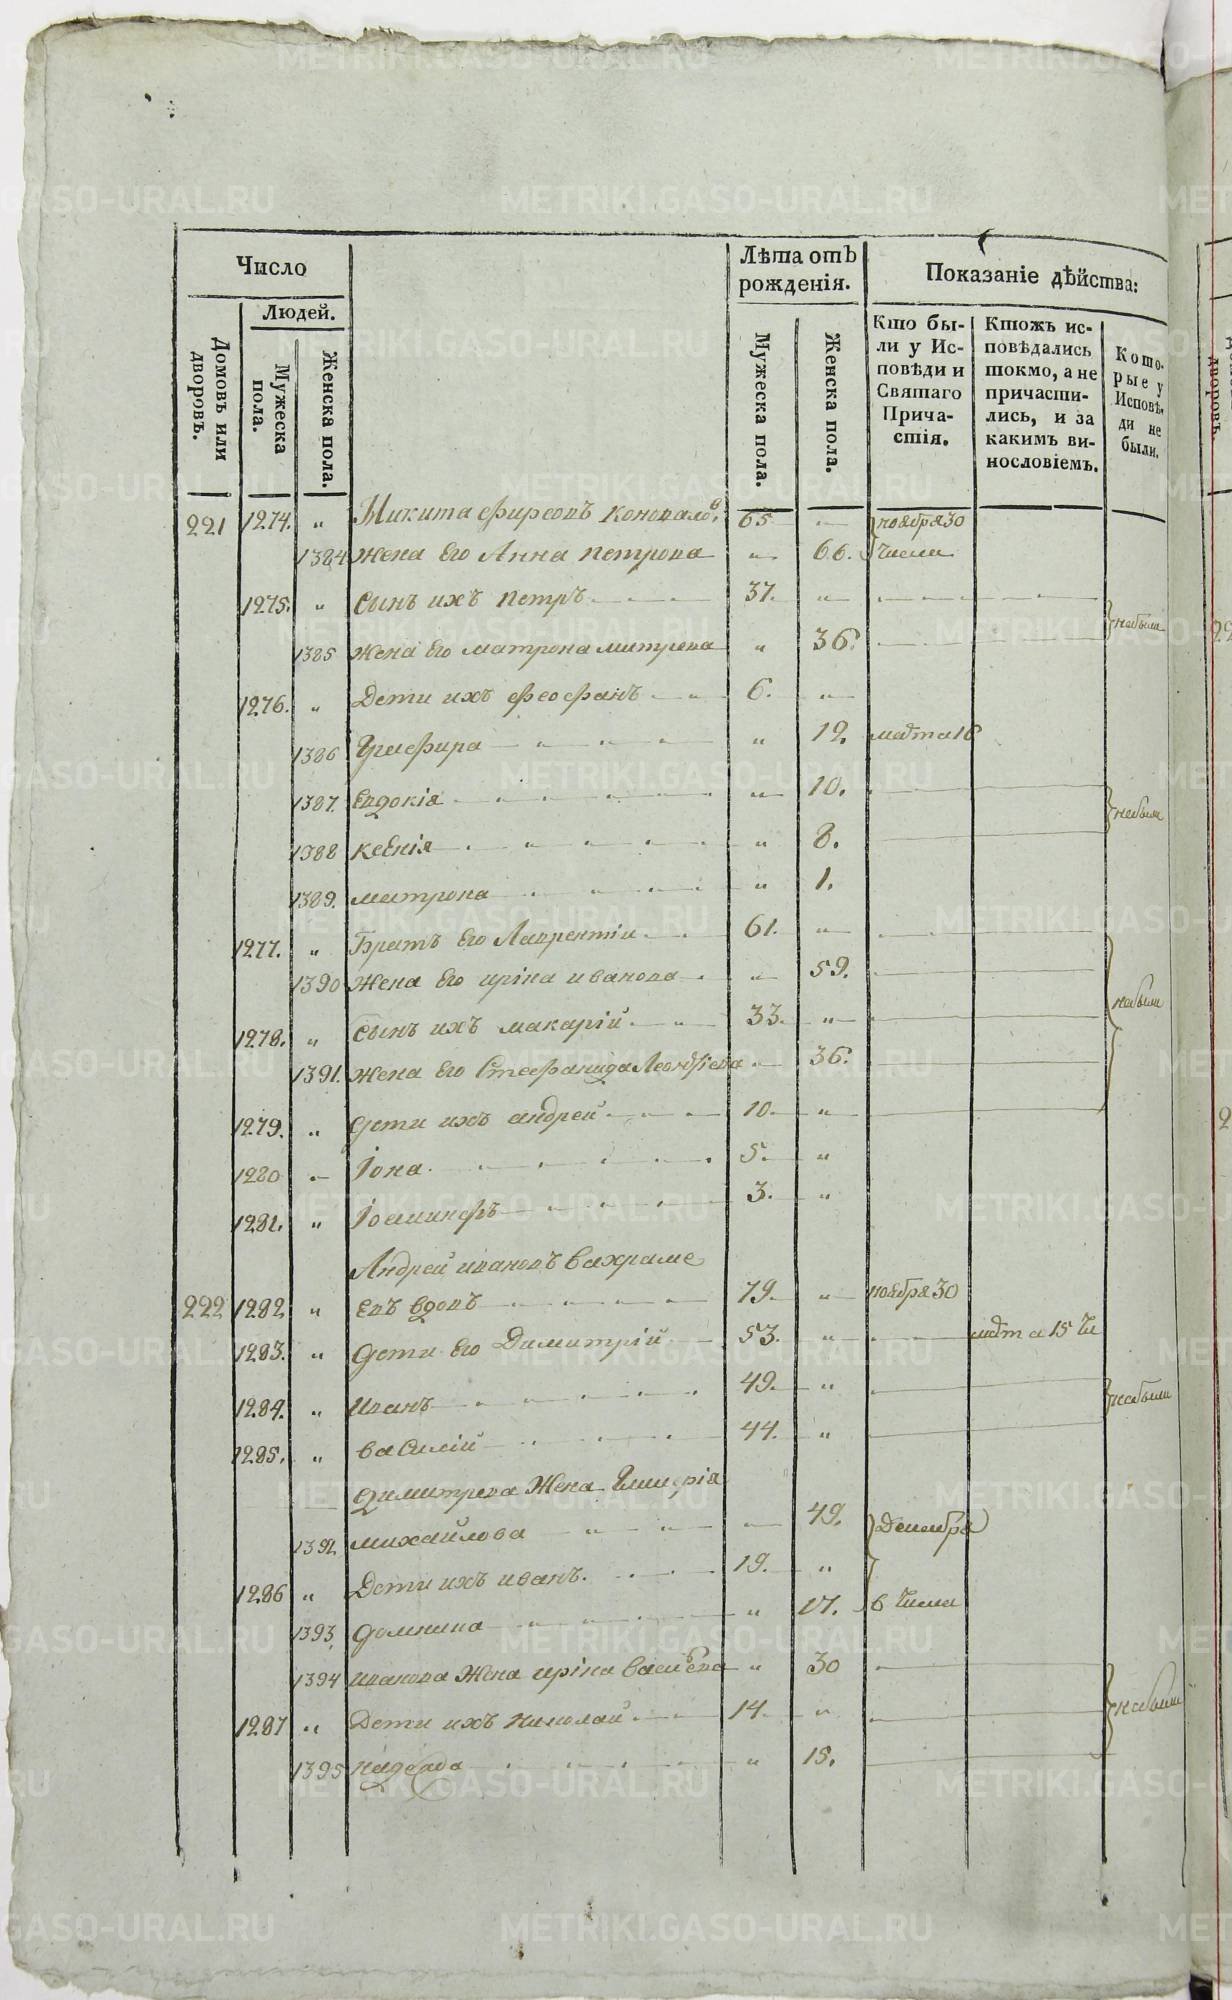 Число
Людей.
Домовъ или дворовъ.
Мужеска пола.
Женска пола.
Лѣта отъ рожденія.
Мужеска пола.
Женска пола.
Показаніе дѣйства:
Кто бы-
ли у Ис-
повѣди и
Святаго
Прича-
стія.
Ктожъ ис-
повѣдались
токмо, а не
причасти-
лись, и за
какимъ ви-
нословіемъ.
Кото-
рые у
Исповѣ-
ди не
были.
221 1274. „ Микита фирсовъ Коновалов. 65 „ ноября 30
1384 жена Его Анна петрова „ 66. числа
1275. „ сынъ ихъ петръ 37. „
небыли
1385 жена Его матрона митрева „ 36.
1276. „ Дети ихъ феофанъ 6. „
1386 „ 12. марта 16
1387. Евдокія „ 10.
небыли
1388 ксенія „ 8.
1389. матрона „ 1.
1277. „ Братъ Его Лаврентіи 61. „
1390 жена Его иріна иванова „ 59.
небыли
1278. „ сынъ ихъ макарій 33. „
1391. жена Его Стефанида Леонтьева 36.
1279. „ дети ихъ андрей 10. „
1280 „ Іона 5. „
1281. „ 3. „
Андрей ивановъ Вахраме
222 1282 „ Евъ вдовъ 79. „ ноября 30
1283. „ дети Его Димитрій 53. „ марта 15 чи
1284. „ иванъ 49. „
небыли
1285. „ василій 44. „
димитрева Жена
1392 михайлова „ 49. Декабря
1286 „ Дети ихъ иванъ. 19. „
1393. домнина „ 17. 6 числа
1394 иванова Жена иріна васильева „ 30
1287 „ Дети ихъ николай 14. „
небыли
1395 надежда „ 15.
METRIKI.GASO-URAL.RU